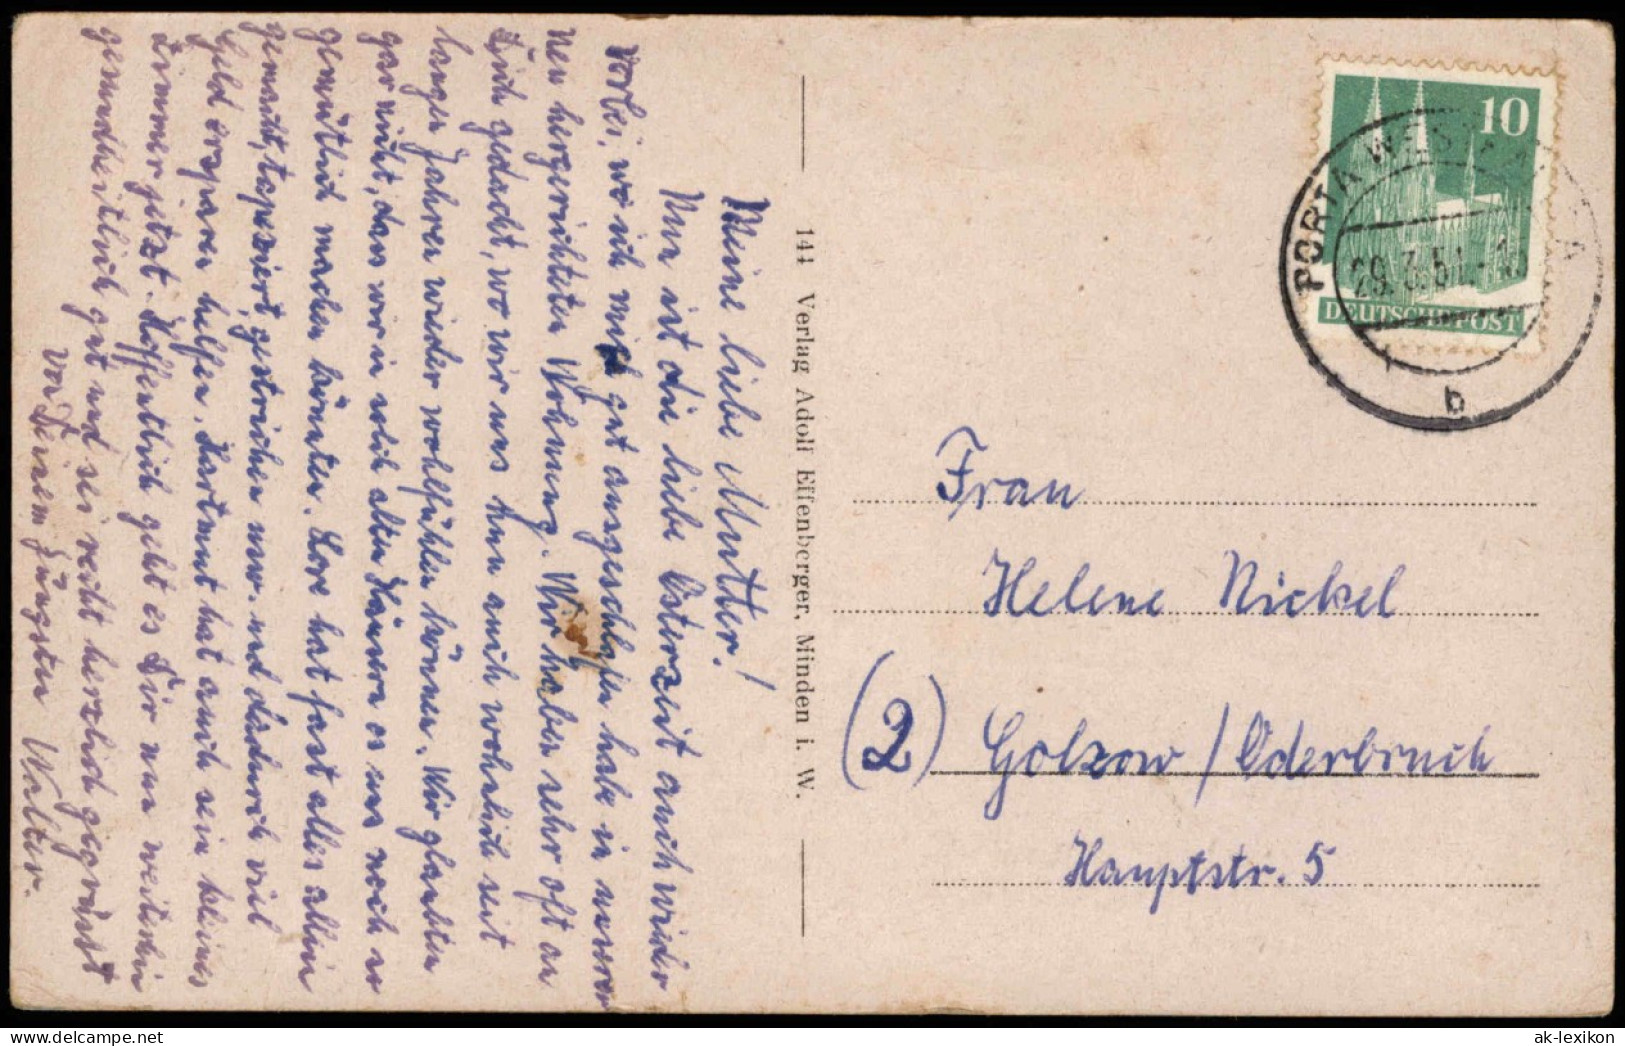 Meine liebe Mutter!
Nun ist die liebe Osterzeit auch wieder
vorbei, wo ich mich gut ausgeschlafen habe in unserer
neu hergerichteten Wohnung. Wir haben sehr oft an
Dich gedacht, wo wir uns nun auch wohnlich seit
langen Jahren wieder wohlfühlen können. Wir glaubten
gar nicht, dass wir in solch alten Häusern es uns noch so
gemütlich machen könnten. Lore hat fast alles allein
gemacht, tapeziert, gestrichen usw. und dadurch viel
Geld ersparen helfen. Hartmut hat auch sein kleines
Zimmer jetzt. Hoffentlich geht es Dir nun weiterhin
gesundheitlich gut und sei recht herzlich gegrüsst
von Deinem Jüngsten Walter.
144 Verlag Adolf Effenberger, Minden i. W.
10
DEUTSCHE POST
PORTA WESTFALICA
29.3.51.-15
b
Frau
Helene Nickel
(2) Golzow / Oderbruch
Hauptstr. 5
ak-lexikon